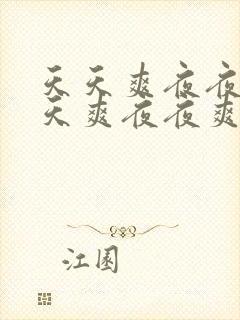 天天爽夜夜
天爽夜夜爽
江园